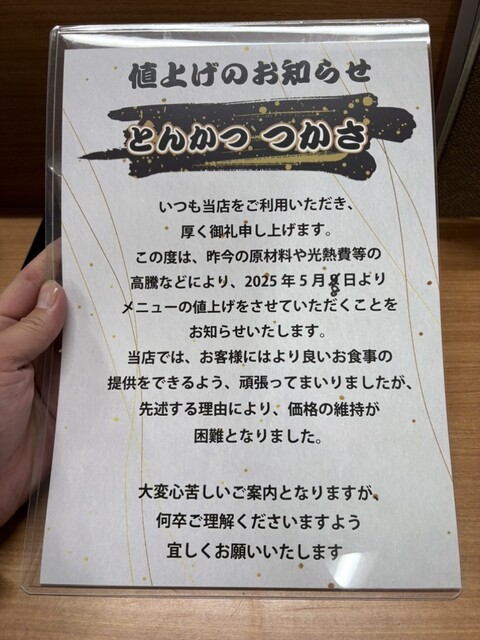 値上げのお知らせ
とんかつ つかさ
いつも当店をご利用いただき、
厚く御礼申し上げます。
この度は、昨今の原材料や光熱費等の
高騰などにより、2025年5月 日より
メニューの値上げをさせていただくことを
お知らせいたします。
当店では、お客様にはより良いお食事の
提供をできるよう、頑張ってまいりましたが、
先述する理由により、価格の維持が
困難となりました。
大変心苦しいご案内となりますが、
何卒ご理解くださいますよう
宜しくお願いいたします